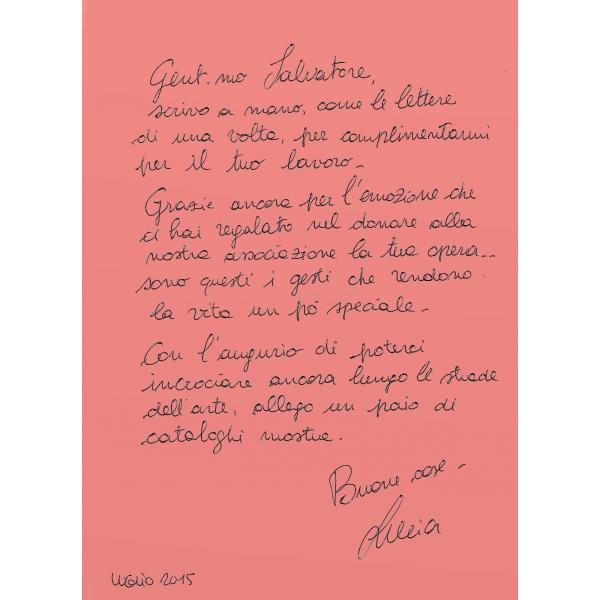 Gent.mo Salvatore,
scrivo a mano, come le lettere
di una volta, per complimentarmi
per il tuo lavoro_
Grazie ancora per l'emozione che
ci hai regalato nel donare alla
nostra associazione la tua opera__
sono questi i gesti che rendono
la vita un pò speciale_
Con l'augurio di poterci
incrociare ancora lungo le strade
dell'arte, allego un paio di
cataloghi mostra.
Buone cose_
Lucia
luglio 2015